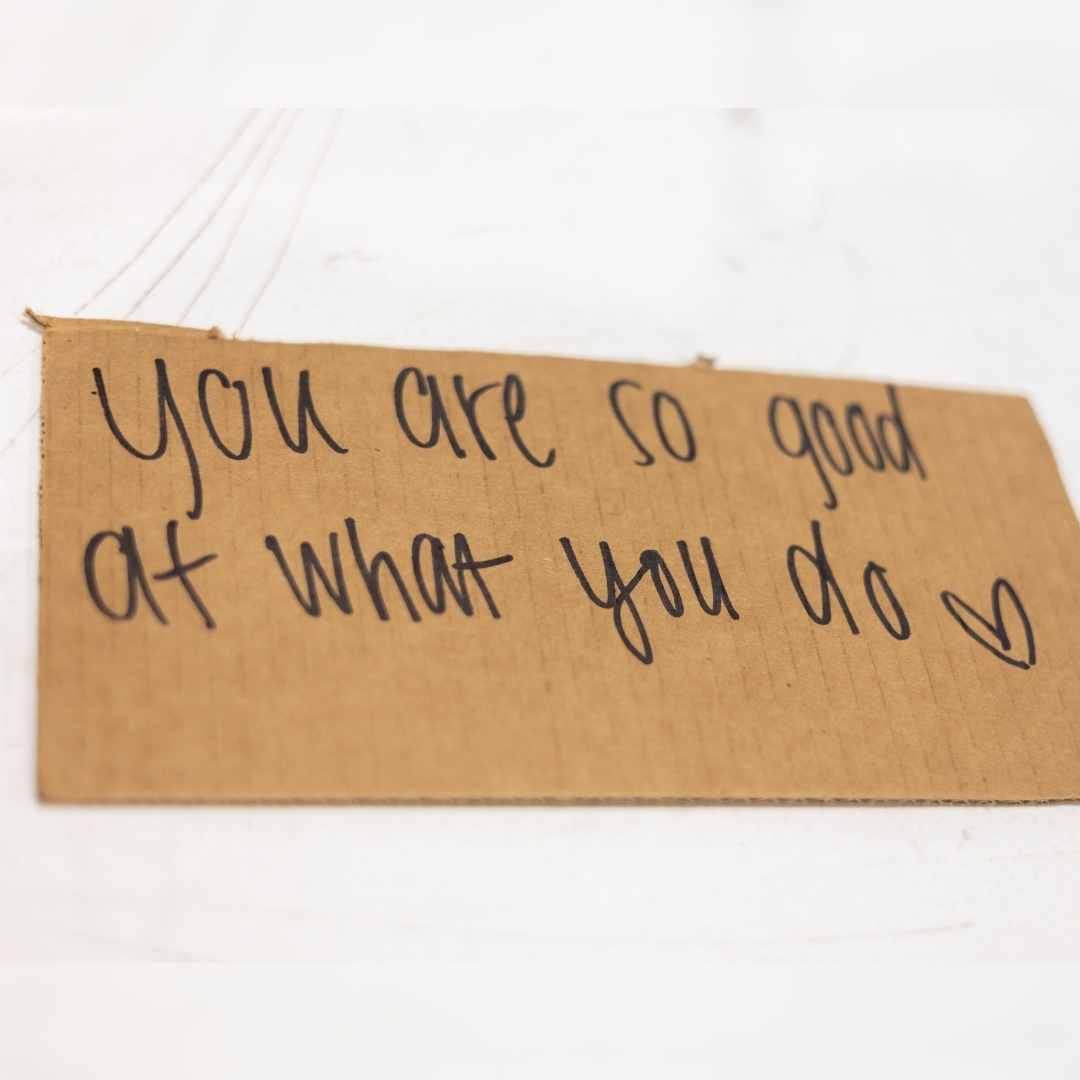 you are so good
at what you do ♡